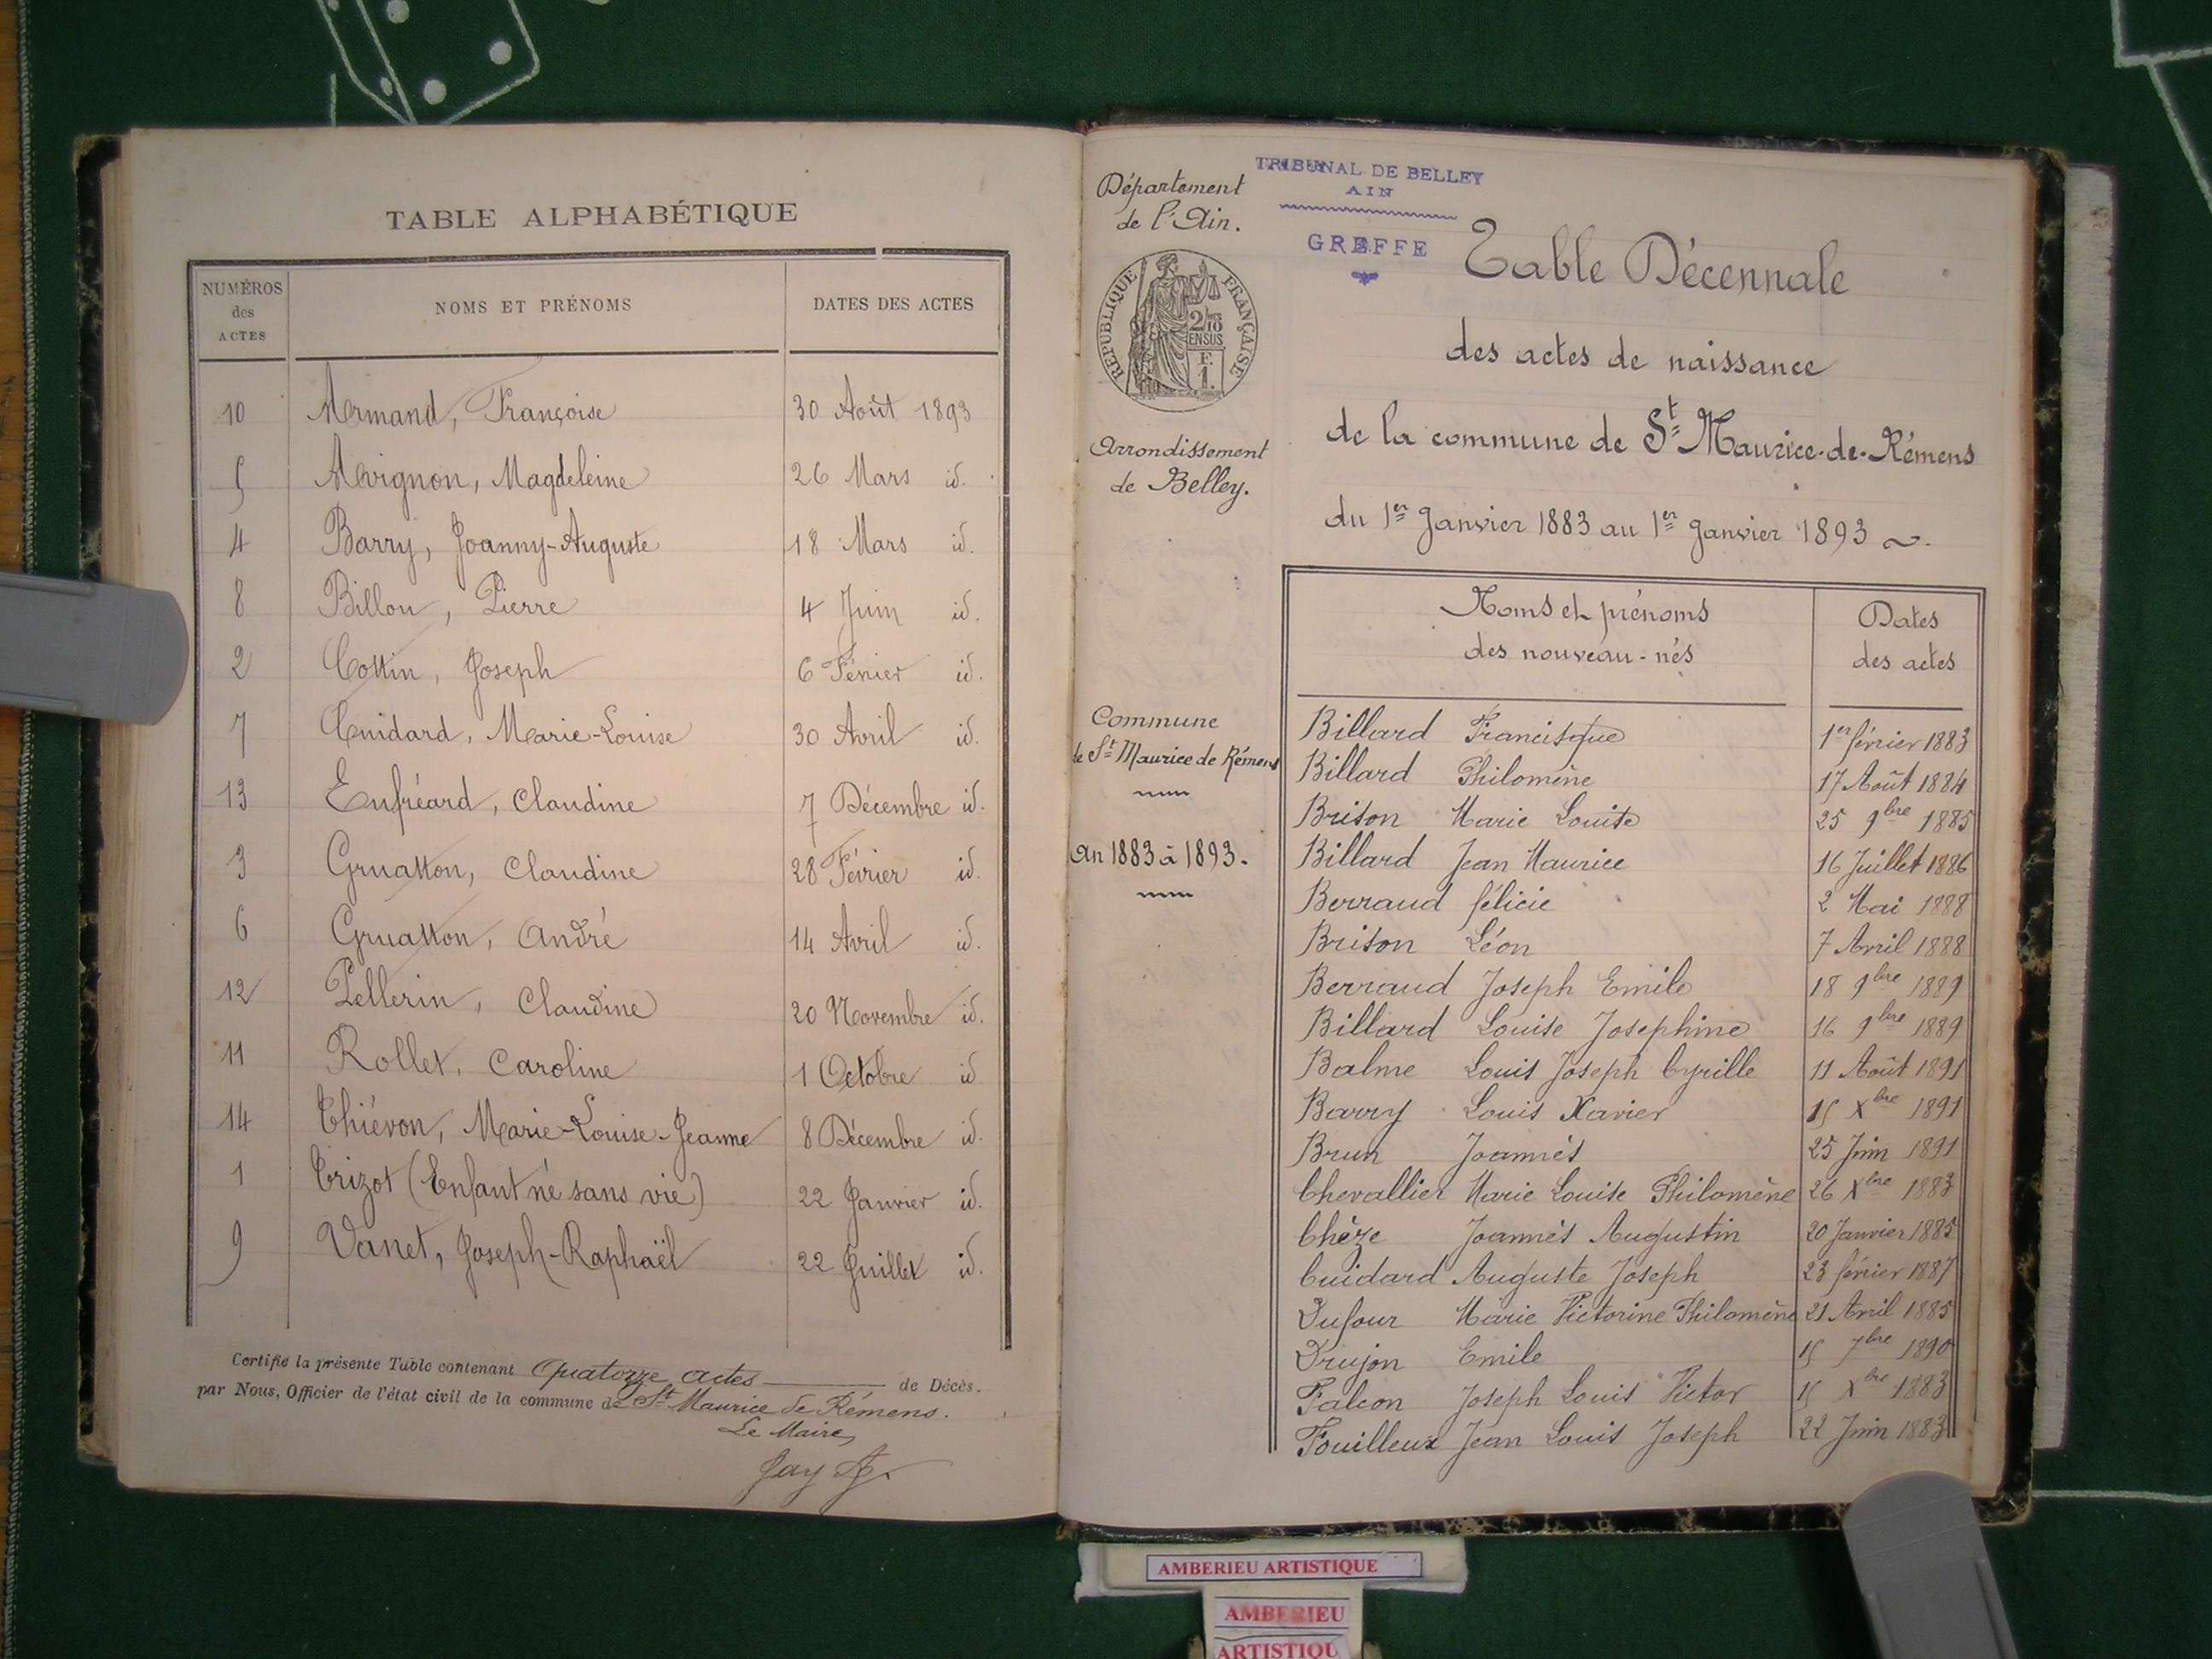 TABLE ALPHABÉTIQUE
NUMÉROS des ACTES NOMS ET PRÉNOMS DATES DES ACTES
10 Armand, Françoise 30 Août 1893
5 Avignon, Magdeleine 26 Mars id.
4 Barry, Joanny-Auguste 18 Mars id.
8 Billon, Pierre 4 Juin id.
2 Cottin, Joseph 6 Février id.
7 Cuidard, Marie-Louise 30 Avril id.
13 Eufréard, Claudine 7 Décembre id.
3 Gruatton, Claudine 28 Février id.
6 Gruatton, André 14 Avril id.
12 Pellerin, Claudine 20 Novembre id.
11 Rollet, Caroline 1 Octobre id
14 Thiévon, Marie-Louise-Jeanne 8 Décembre id.
1 Trizot (Enfant né sans vie) 22 Janvier id.
9 Vanet, Joseph-Raphaël 22 Juillet id.
Certifié la présente Table contenant Quatorze actes de Décès.
par Nous, Officier de l'état civil de la commune de St Maurice de Rémens.
Le Maire,
Jay
Département
de l'Ain.
TRIBUNAL DE BELLEY
AIN
GREFFE
RÉPUBLIQUE FRANÇAISE
2/10
EN SUS
F.
1.
Arrondissement
de Belley.
Commune
de St Maurice de Rémens
An 1883 à 1893.
Table Décennale
des actes de naissance
de la commune de St Maurice-de-Rémens
du 1er Janvier 1883 au 1er Janvier 1893
Noms et prénoms Dates
des nouveau-nés des actes
Billard Francisque 1er février 1883
Billard Philomène 17 Août 1884
Brison Marie Louise 25 9bre 1885
Billard Jean Maurice 16 Juillet 1886
Berraud félicie 2 Mai 1888
Brison Léon 7 Avril 1888
Berraud Joseph Emile 18 9bre 1889
Billard Louise Josephine 16 9bre 1889
Balme Louis Joseph Cyrille 11 Août 1891
Barry Louis Xavier 15 Xbre 1891
Brun Joannès 25 Juin 1891
Chevallier Marie Louise Philomène 26 Xbre 1883
Chèze Joannès Augustin 20 Janvier 1885
Cuidard Auguste Joseph 23 février 1887
Dufour Marie Victorine Philomène 21 Avril 1885
Drujon Emile 15 7bre 1890
Falcon Joseph Louis Victor 15 Xbre 1883
Fouilleux Jean Louis Joseph 22 Juin 1883
AMBERIEU ARTISTIQUE
AMBERIEU
ARTISTIQU